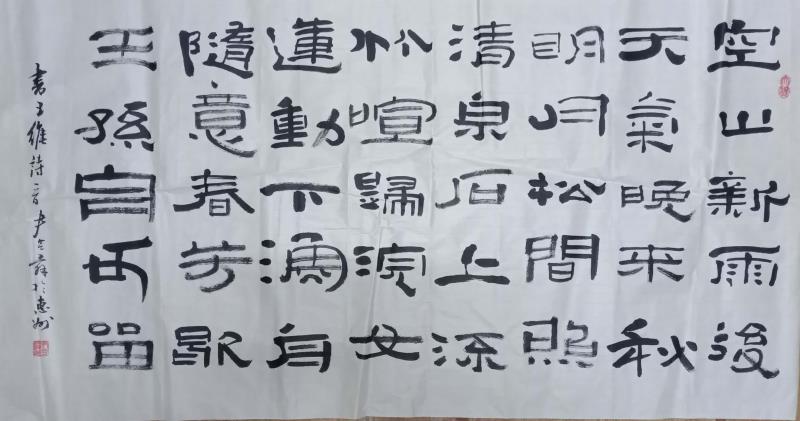 空山新雨後
天氣晚來秋
明月松間照
清泉石上流
竹喧歸浣女
蓮動下漁舟
隨意春芳歇
王孫自可留
書王維詩一首 於惠州